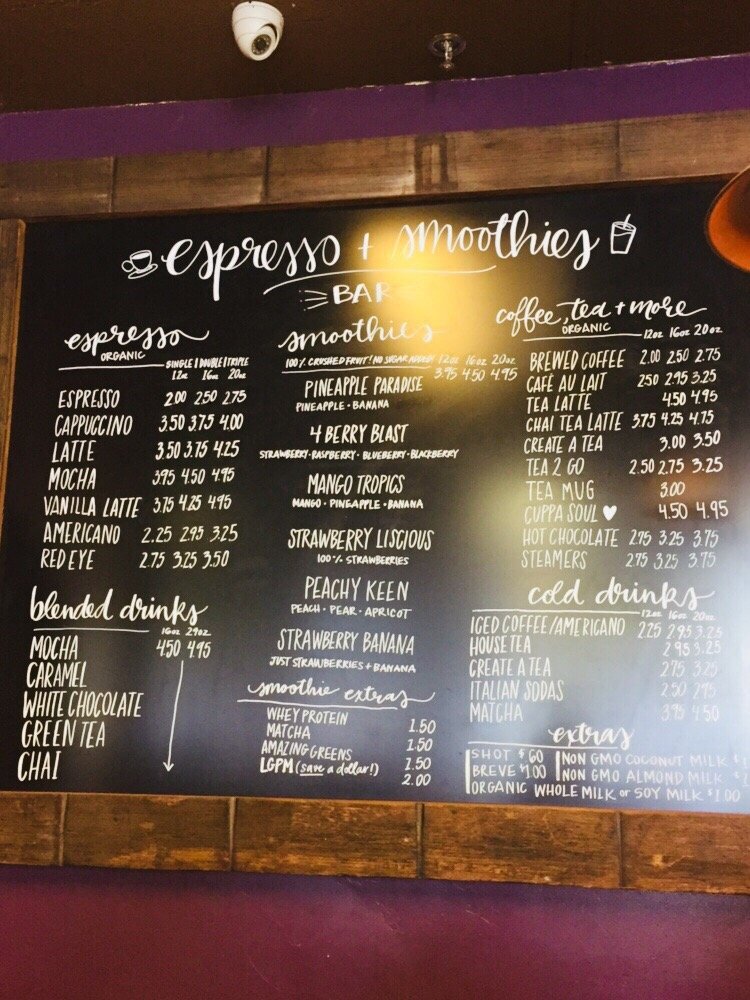 espresso + smoothies
BAR
espresso
ORGANIC
SINGLE | DOUBLE | TRIPLE
12oz 16oz 20oz
ESPRESSO 2.00 2.50 2.75
CAPPUCCINO 3.50 3.75 4.00
LATTE 3.50 3.75 4.25
MOCHA 3.95 4.50 4.95
VANILLA LATTE 3.75 4.25 4.95
AMERICANO 2.25 2.95 3.25
RED EYE 2.75 3.25 3.50
blended drinks
16oz 29oz
MOCHA 4.50 4.95
CARAMEL
WHITE CHOCOLATE
GREEN TEA
CHAI
smoothies
100% CRUSHED FRUIT! NO SUGAR ADDED! 12oz 16oz 20oz
3.95 4.50 4.95
PINEAPPLE PARADISE
PINEAPPLE • BANANA
4 BERRY BLAST
STRAWBERRY • RASPBERRY • BLUEBERRY • BLACKBERRY
MANGO TROPICS
MANGO • PINEAPPLE • BANANA
STRAWBERRY LISCIOUS
100% STRAWBERRIES
PEACHY KEEN
PEACH • PEAR • APRICOT
STRAWBERRY BANANA
JUST STRAWBERRIES + BANANA
smoothie extras
WHEY PROTEIN 1.50
MATCHA 1.50
AMAZING GREENS 1.50
LGPM (save a dollar!) 2.00
coffee, tea + more
ORGANIC
12oz 16oz 20oz
BREWED COFFEE 2.00 2.50 2.75
CAFÉ AU LAIT 2.50 2.95 3.25
TEA LATTE 4.50 4.95
CHAI TEA LATTE 3.75 4.25 4.75
CREATE A TEA 3.00 3.50
TEA 2 GO 2.50 2.75 3.25
TEA MUG 3.00
CUPPA SOUL ♥ 4.50 4.95
HOT CHOCOLATE 2.75 3.25 3.75
STEAMERS 2.75 3.25 3.75
cold drinks
12oz 16oz 20oz
ICED COFFEE/AMERICANO 2.25 2.95 3.25
HOUSE TEA 2.95 3.25
CREATE A TEA 2.75 3.25
ITALIAN SODAS 2.50 2.95
MATCHA 3.95 4.50
extras
SHOT $.60 NON GMO COCONUT MILK
BREVE $1.00 NON GMO ALMOND MILK
ORGANIC WHOLE MILK or SOY MILK $1.00